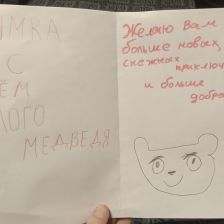 ИМКА
С
ЁМ
ЛОГО
МЕДВЕДЯ
Желаю Вам
больше новых,
снежных приключ
и больше
добра